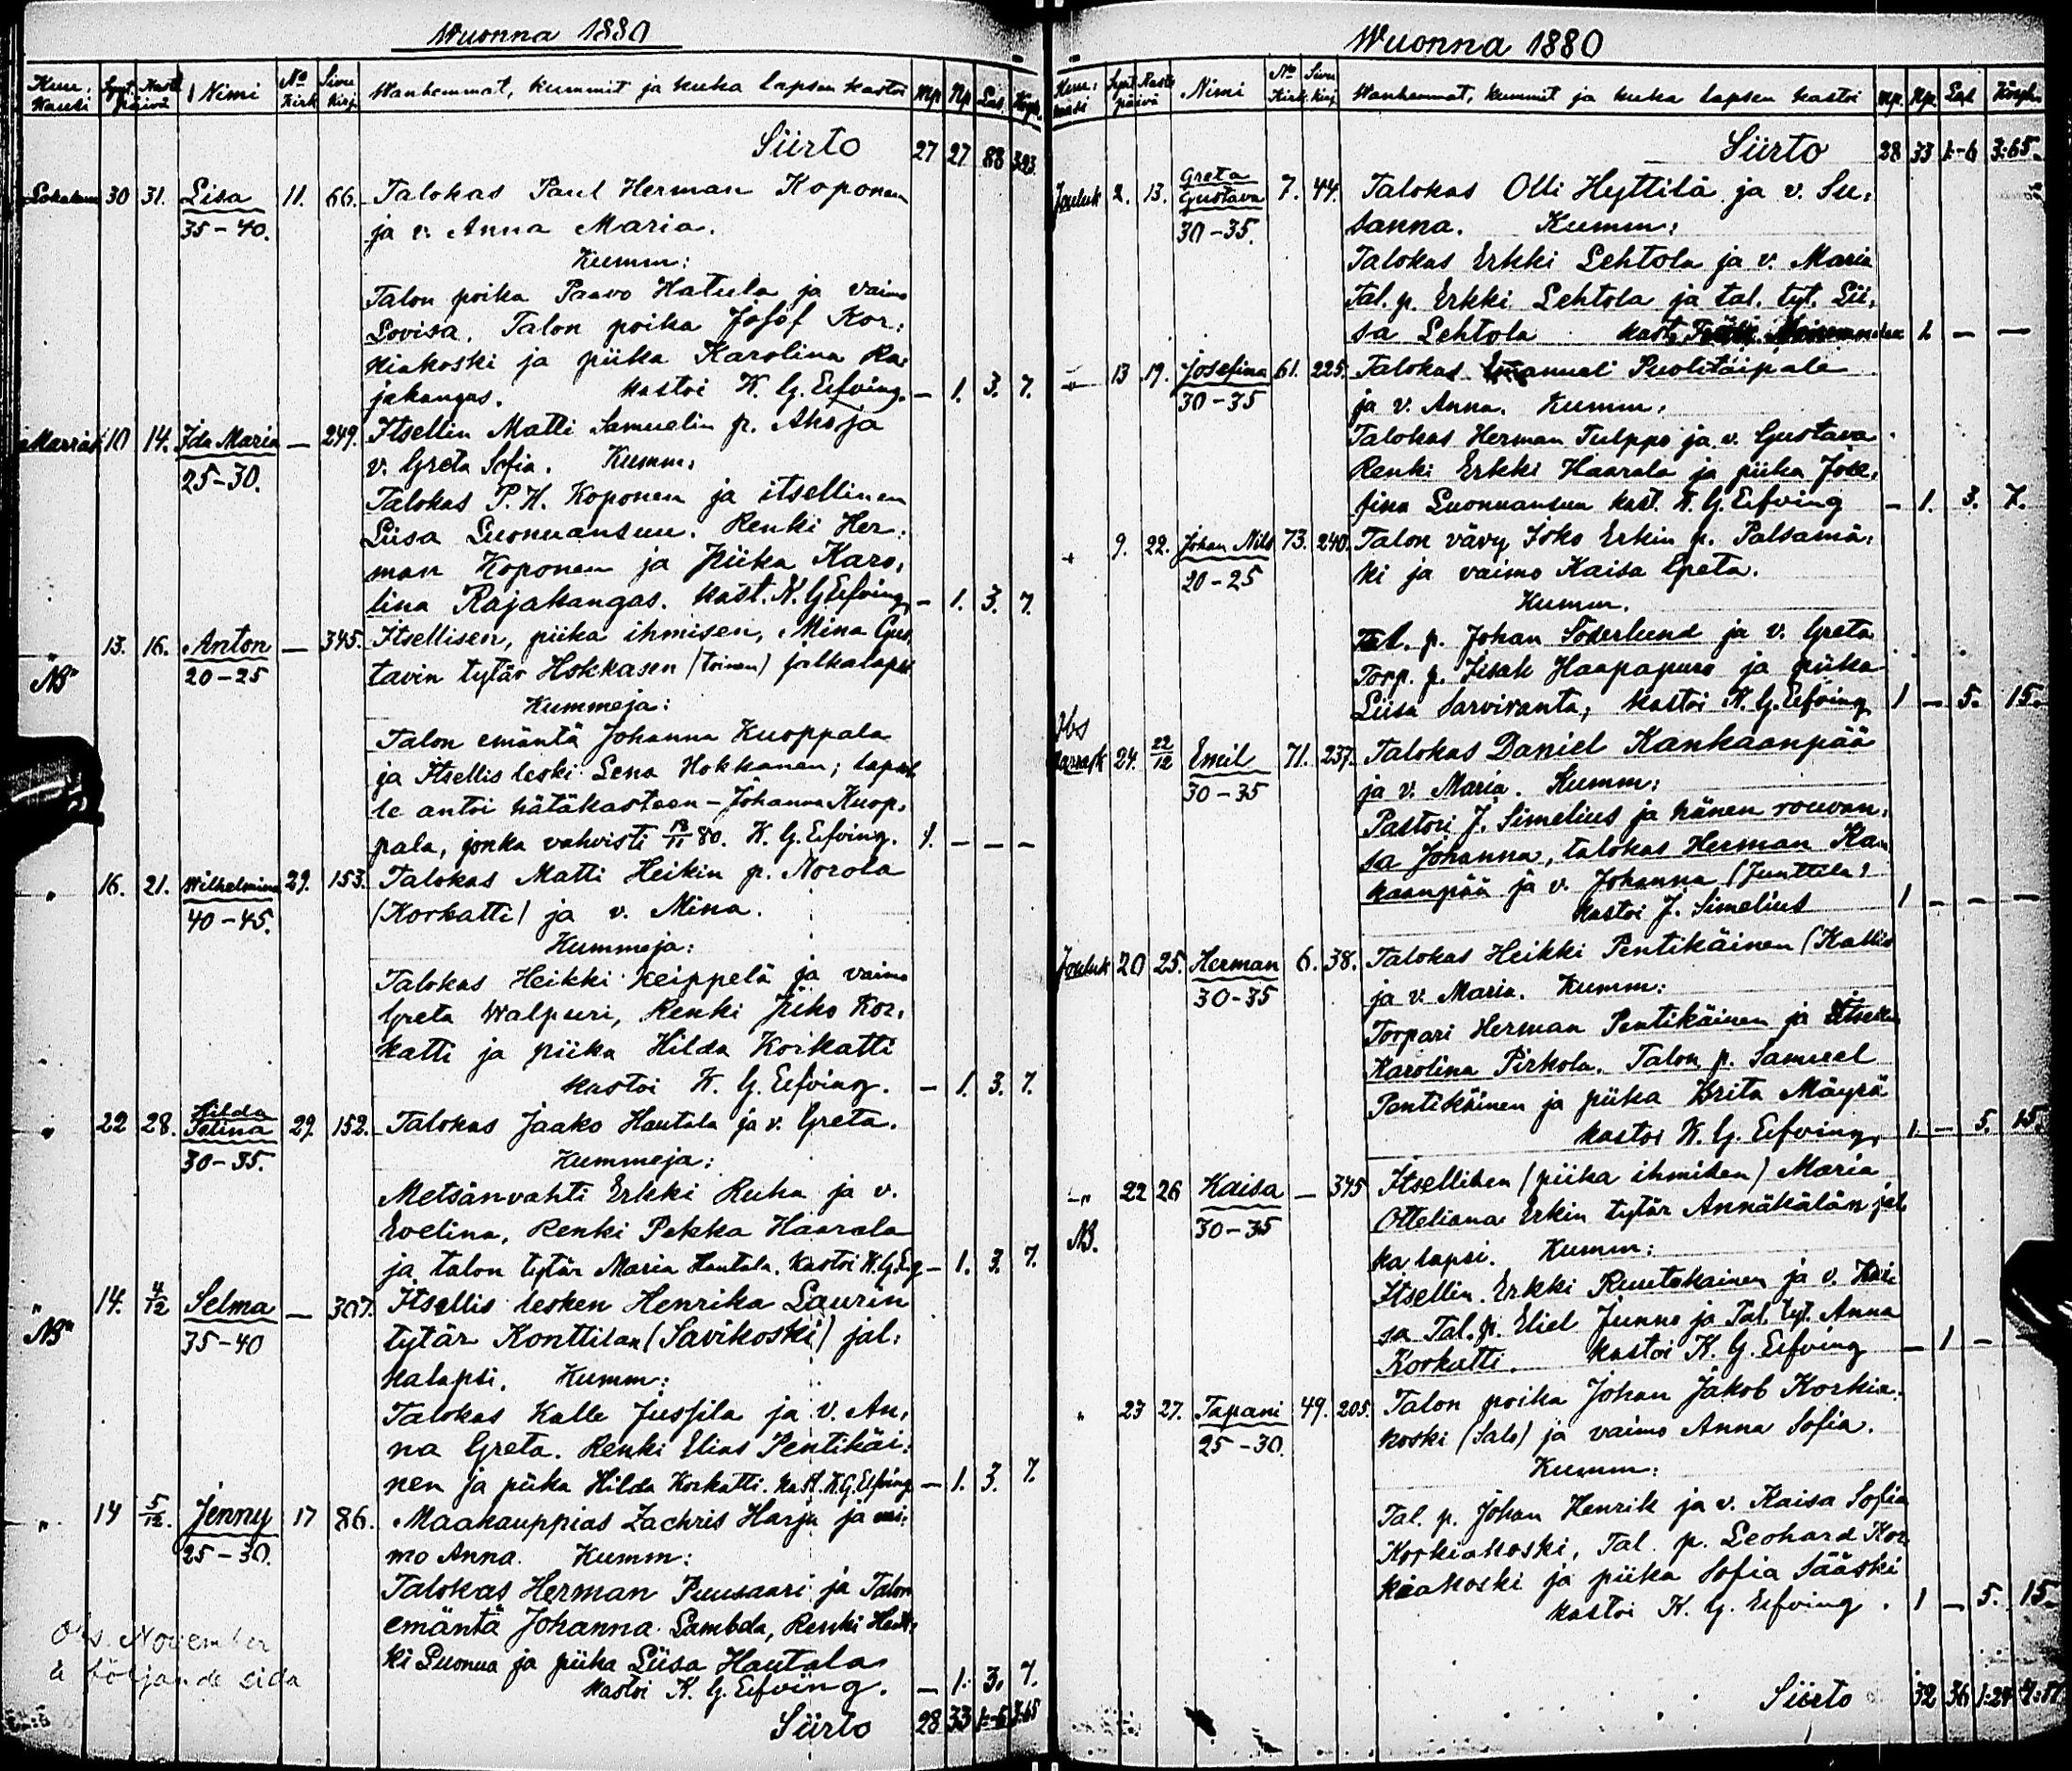 Wuonna 1880
Kuu: kausi Synt. Kast. päivä Nimi No Kirk. Sivu Kirj. Wanhemmat, kummit ja kuka lapsen kastoi Mp. Np. Las.
Siirto 27 27 88 3:23.
Lokakuu 30 31. Lisa 11. 66. Talokas Paul Herman Koponen
35-40. ja v. Anna Maria.
Kumm:
Talon poika Paavo Hatula ja vaimo
Lovisa. Talon poika Josef Kor:
kiakoski ja piika Karolina Ra:
jakangas. kastoi K. G. Eefving. - 1. 3. 7.
Marrask 10 14. Ida Maria - 249. Itsellin Matti Samuelin p. Aho ja
25-30. v. Greta Sofia. Kumm:
Talokas P. H. Koponen ja itsellinen
Liisa Luonuansuu. Renki Her:
man Koponen ja Piika Karo:
lina Rajakangas. Kast. K. G Eefving - 1. 3. 7.
" 13. 16. Anton - 345. Itsellisen, piika ihmisen, Mina Gus
NB" 20-25 tavin tytär Hokkasen (toinen) jalkalapsi
Kummeja:
Talon emäntä Johanna Kuoppala
ja Itsellis leski Lena Hokkanen; lapsel
le antoi hätäkasteen - Johanna Kuop:
pala, jonka vahvisti 80. K. G. Eefving. 1. - - -
" 16. 21. Wilhelmina 29. 153. Talokas Matti Heikin p. Norola
40-45. (Korkatti) ja v. Mina.
Kummeja:
Talokas Heikki Keippelä ja vaimo
Greta Walpuri, Renki Juho Kor:
katti ja piika Hilda Korkatti
kastoi K. G. Eefving. - 1. 3. 7.
" 22 28. Hilda 29. 152. Talokas Jaako Hautala ja v. Greta.
30-35. Kummeja:
Metsänvahti Erkki Ruha ja v.
Evelina, Renki Pekka Haarala
ja talon tytär Maria Hautala. Kastoi K. G. Efg - 1. 3. 7.
" 14. 4/12 Selma - 307. Itsellis lesken Henrika Laurin
NB" 35-40 tytär Konttilan (Savikoski) jal:
kalapsi. Kumm:
Talokas Kalle Jussila ja v. An:
na Greta. Renki Elias Pentikäi:
nen ja piika Hilda Korkatti. Kast. K. G. Eefving - 1. 3. 7.
" 14 5/12. Jenny 17 86. Maakauppias Zachris Harju ja vai:
25-30. mo Anna. Kumm:
Talokas Herman Puusaari ja Talon
emäntä Johanna Lambda, Renki Heik:
ki Luonua ja piika Liisa Hautala
kastoi K. G. Eefving. - 1. 3. 7.
Obs. November
å följande sida
Siirto 28 33 1:-6 3:65
Wuonna 1880
Synt. Kast. päivä Nimi No Kirk. Sivu Kirj. Wanhemmat, kummit ja kuka lapsen kastoi Mp. Np. Las.
Siirto 28 33 1:-6 3:65.
Jouluk 2. 13. Greta Gustava 7. 44. Talokas Olli Hyttilä ja v. Su:
30-35. sanna. Kumm:
Talokas Erkki Lehtola ja v. Maria
Tal. p. Erkki Lehtola ja tal. tyt. Lii:
sa Lehtola kast. 1. - -
" 13 19. Josefina 61. 225. Talokas Emanueli Puolitaipale
30-35 ja v. Anna. Kumm:
Talokas Herman Tulppo ja v. Gustava
Renki Erkki Haarala ja piika Jose:
fina Luonuansuu kast. K. G. Eefving - 1. 3. 7.
" 9. 22. Johan Nils 73. 240. Talon vävy Isko Erkin p. Palsamä:
20-25 ki ja vaimo Kaisa Greta.
Kumm.
Tal. p. Johan Söderlund ja v. Greta
Torp. p. Iisak Haapapuro ja piika
Liisa Sarviranta, kastoi K. G. Eefving 1 - 5. 15.
Obs
Marrask 24. 22/12 Emil 71. 237. Talokas Daniel Kankaanpää
30-35 ja v. Maria. Kumm:
Pastori J. Simelius ja hänen rouvan:
sa Johanna, talokas Herman Kan
kaanpää ja v. Johanna (Junttila)
kastoi J. Simelius 1 - - -
Jouluk 20 25. Herman 6. 38. Talokas Heikki Pentikäinen (Kallio
30-35 ja v. Maria. Kumm:
Torpari Herman Pentikäinen ja Itsellin
Karolina Pirkola. Talon p. Samuel
Pentikäinen ja piika Brita Mäyrä
kastoi K. G. Eefving. 1. - 5. 15.
" 22 26 Kaisa - 345 Itsellisen (piika ihmisen) Maria
NB. 30-35 Otteliana Erkin tytär Annäkälän jal
ka lapsi. Kumm:
Itsellin. Erkki Ruutukainen ja v. Kai
sa Tal. p. Eliel Junno ja Tal. tyt. Anna
Korkatti. kastoi K. G. Eefving - 1 - -
" 23 27. Tapani 49. 205. Talon poika Johan Jakob Korkia:
25-30. koski (Salo) ja vaimo Anna Sofia.
Kumm:
Tal. p. Johan Henrik ja v. Kaisa Sofia
Korkiakoski, Tal. p. Leohard Kor
kiakoski ja piika Sofia Sääski
kastoi K. G. Eefving. 1 - 5. 15.
Siirto 32 36 1:24